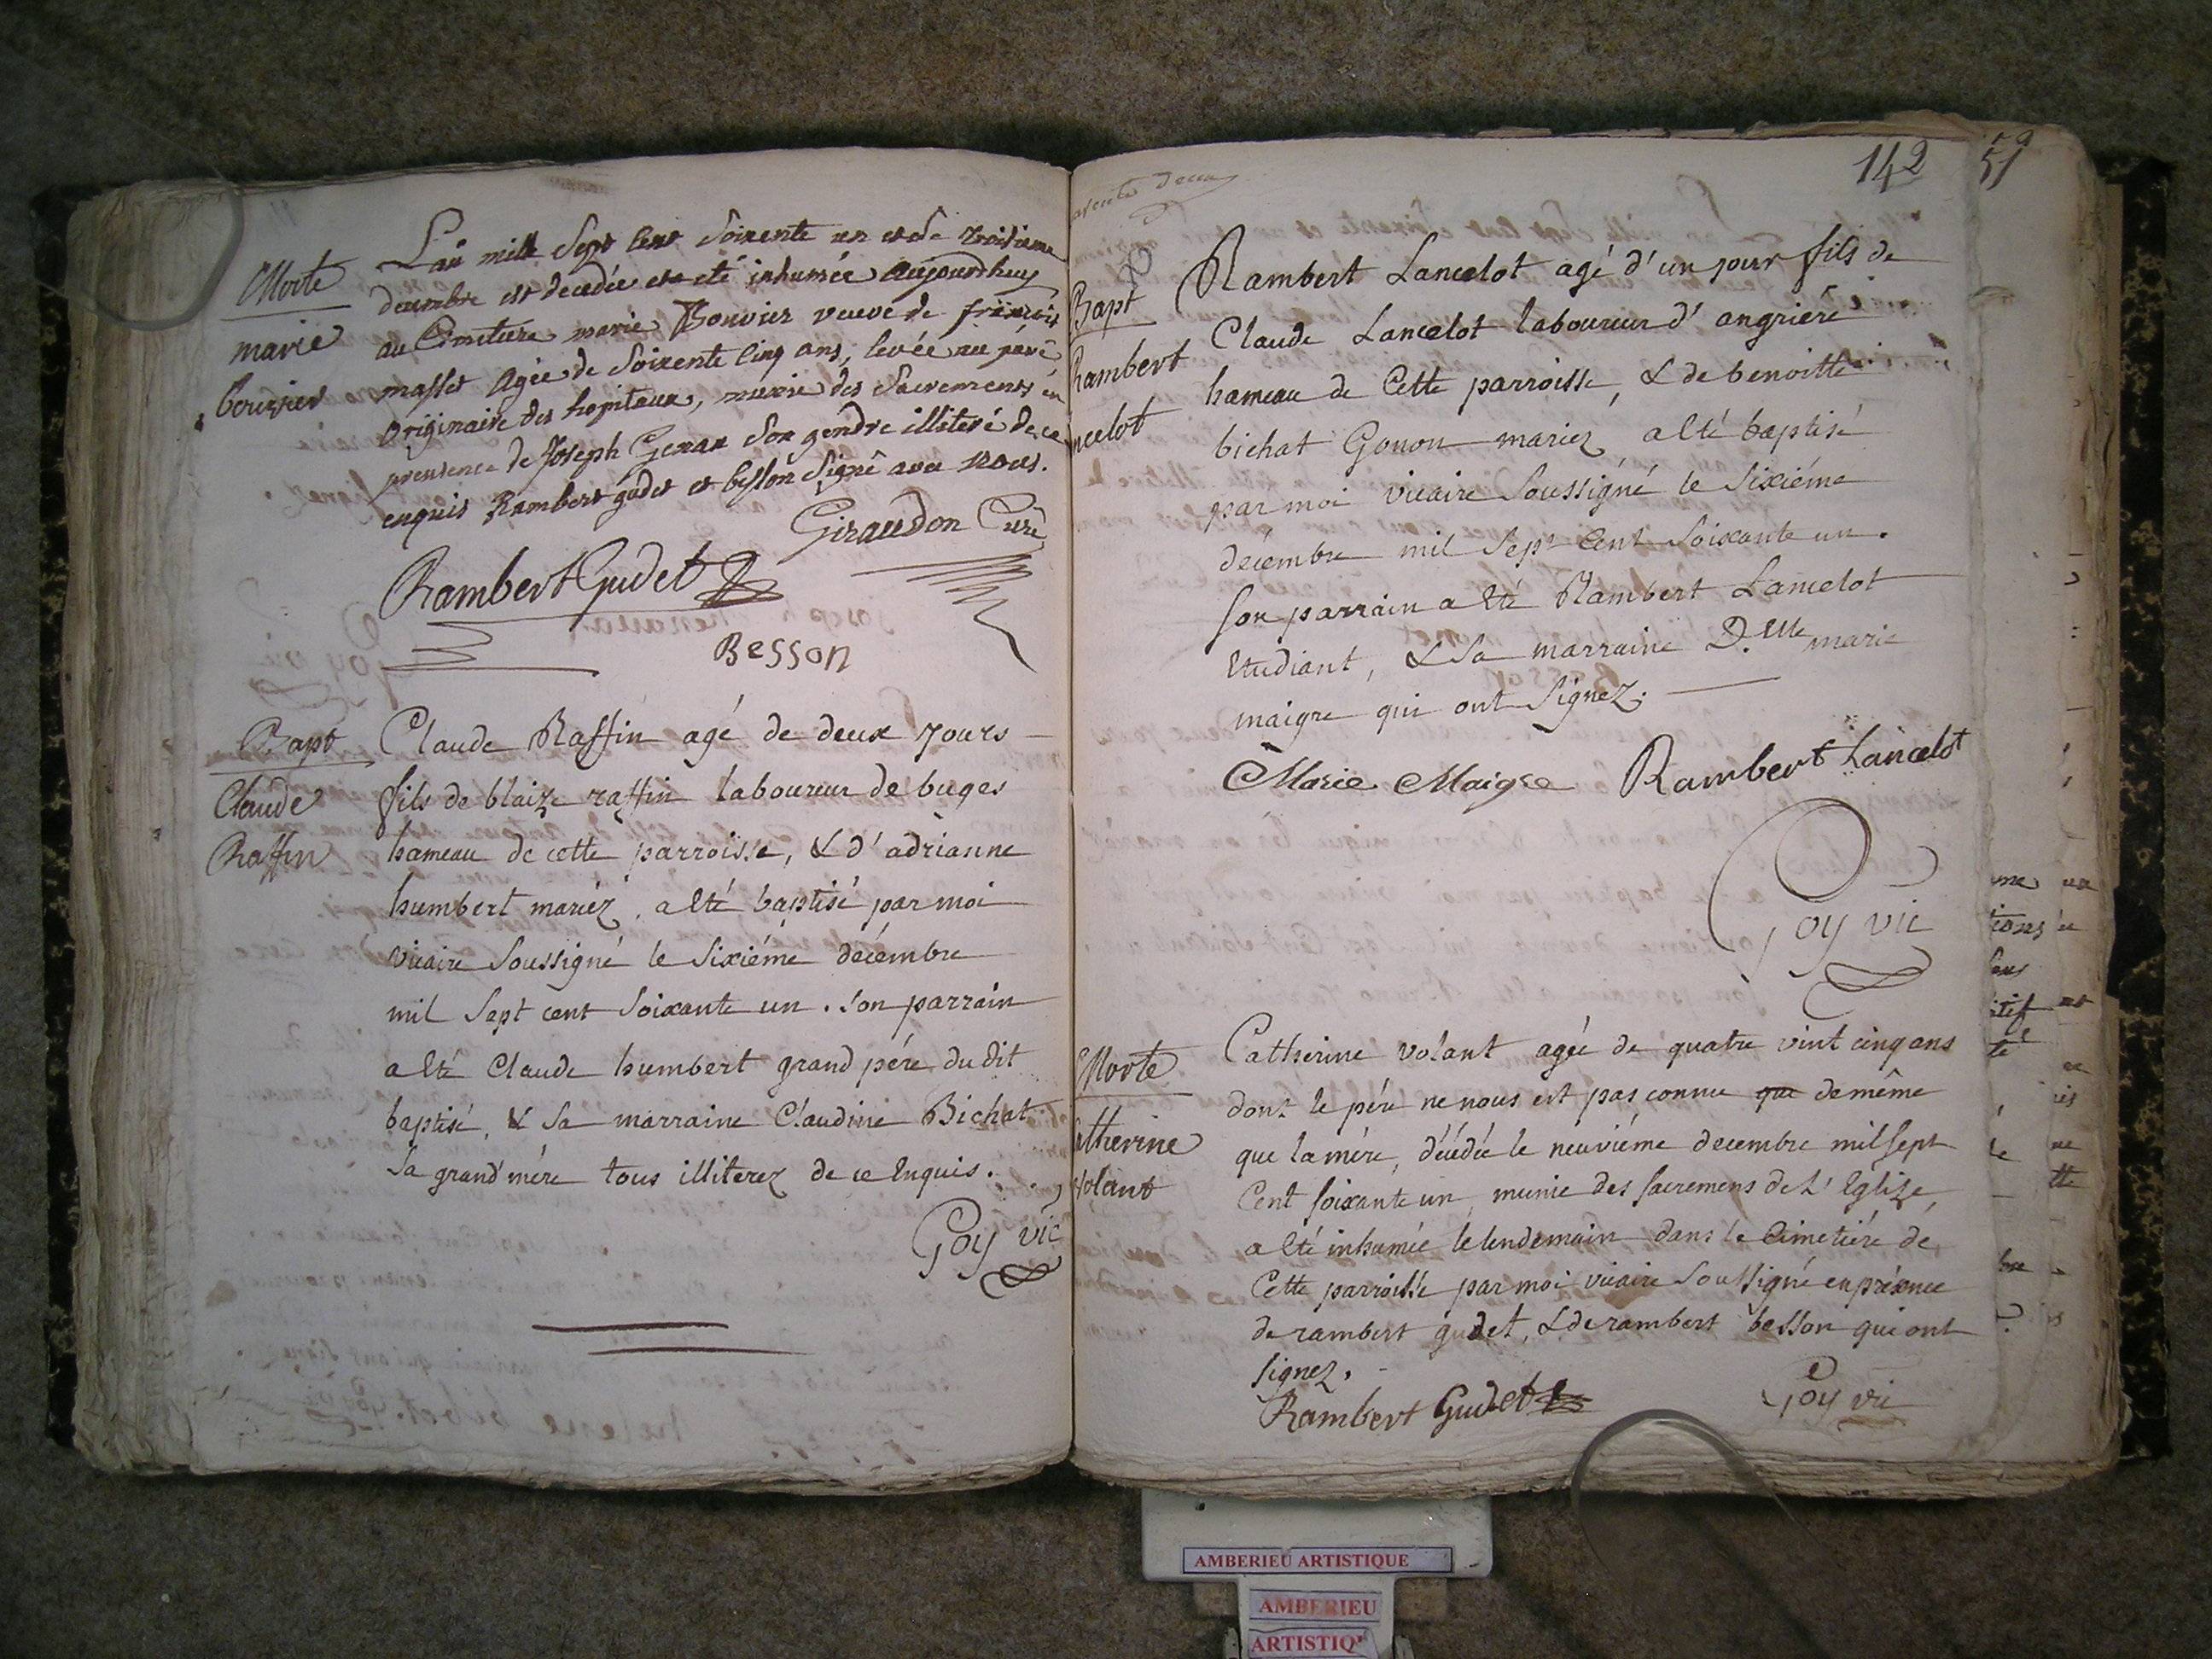 Morte
marie
bouvier
L'an mille Sept Cent Soixente un et le troisieme
decembre est decedée et a eté inhumée aujourdhuy
au Cimetiere marie Bouvier veuve de françois
masset Agée de Soixente Cinq ans, levée au pavé
Originaire des hopitaux, munie des Sacrements en
presence de Joseph Genax son gendre illiteré de ce
enquis Rambert gudet et besson Signé avec nous.
Giraudon Curé
Rambert Gudet
Besson
Bapt
Claude
Raffin
Claude Raffin agé de deux jours
fils de blaize raffin laboureur de buges
hameau de cette parroisse, & d'adrianne
humbert mariéz, a eté baptisé par moi
vicaire Soussigné le Sixiéme décémbre
mil Sept cent Soixante un. Son parrain
a eté Claude humbert grand pére du dit
baptisé, & Sa marraine Claudine Bichat
Sa grand'mére tous illiterez de ce Enquis.
Goy vic
142
51
Bapt
Rambert
ncelot
Rambert Lancelot agé d'un jour fils de
Claude Lancelot laboureur d'angriéré
hameau de Cette parroisse, & de benoitte
bichat Gonon mariez, a eté baptisé
par moi vicaire Soussigné le Sixiéme
decémbre mil Sept Cent Soixante un.
Son parrain a eté Rambert Lancelot
Etudiant, & Sa marraine D.elle marie
maigre qui ont Signez.
Marie Maigre Rambert Lancelot
Goy vic
Morte
atherine
Volant
Catherine volant agée de quatre vint cinq ans
dont le pére ne nous est pas connu que de même
que la mére, décédée le neuviéme decembre mil Sept
Cent Soixante un, munie des Sacremens de L'Eglize,
a eté inhumée le lendemain dans le Cimetiére de
Cette parroisse par moi vicaire Soussigné en présence
de rambert gudet, & de rambert besson qui ont
Signez.
Rambert Gudet
Goy vic
AMBERIEU ARTISTIQUE
AMBERIEU
ARTISTIQ